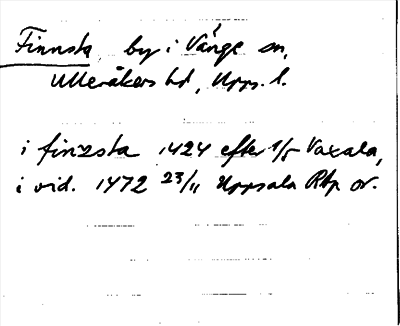 Finnsta, by i Vänge sn,
Ulleråkers hd, Upps. l.
i finzsta 1424 efter 1/5 Vaxala,
i vid. 1472 23/11 Uppsala Rbp or.